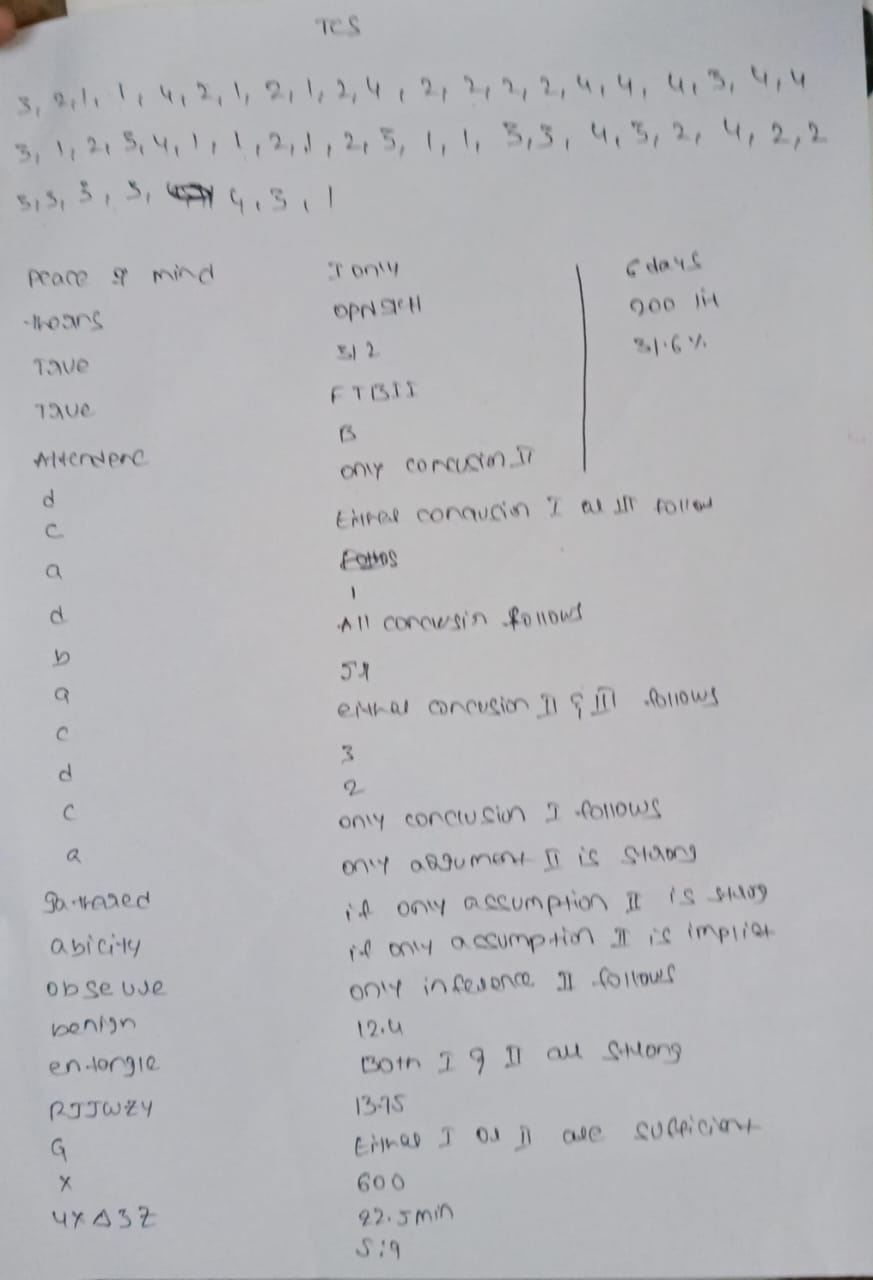 TCS
3, 2, 1, 1, 4, 2, 1, 2, 1, 2, 4, 2, 2, 2, 2, 4, 4, 4, 3, 4, 4
3, 1, 2, 3, 4, 1, 1, 1, 2, 1, 2, 3, 1, 1, 3, 3, 4, 3, 2, 4, 2, 2
3, 3, 3, 3, 4, 3, 1
peace of mind
Tave
Tave
d
c
a
d
b
a
c
d
c
a
abicity
obseuve
benign
entorgle
RJJWZY
G
X
4X Δ3Z
I only
312
FTBII
B
only concusion II
Eithel conqucion I al III follow
1
All concwsin follows
eithal concusion II & III follows
3
2
only conclusion I follows
only aggument II is staong
if only assumption II is stlog
if only assumption II is implict
only inference II follows
12.4
Both I & II all stlong
13.75
Eithal I ol II ale sufficient
600
22.5min
5:9
6 days
900 lit
31.6%